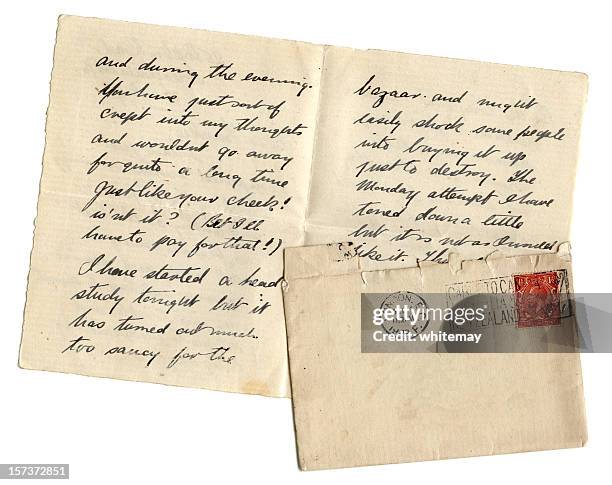 and during the evening.
You have just sort of
crept into my thoughts
and wouldnt go away
for quite a long time
Just like your cheek!
isn't it? (Bet I'll
have to pay for that!)
I have started a head
study tonight but it
has turned out much
too saucy for the
bazaar. and might
easily shock some people
into buying it up
just to destroy. The
Monday attempt I have
toned down a little
but it is not as I would
like it. The
gettyimages
Credit: whitemay
1157372851